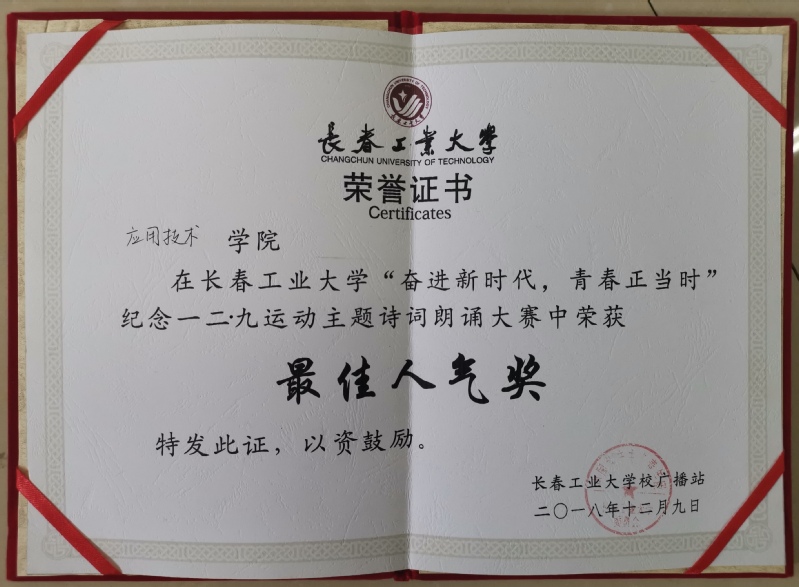 长春工业大学
CHANGCHUN UNIVERSITY OF TECHNOLOGY
荣誉证书
Certificates
应用技术 学院
在长春工业大学“奋进新时代，青春正当时”
纪念一二·九运动主题诗词朗诵大赛中荣获
最佳人气奖
特发此证，以资鼓励。
长春工业大学校广播站
二〇一八年十二月九日